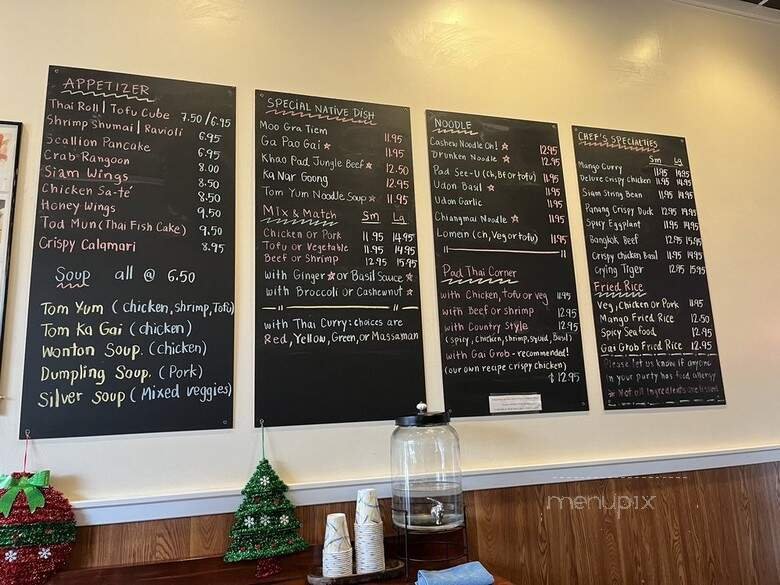 APPETIZER
Thai Roll | Tofu Cube 7.50/6.95
Shrimp Shumai | Ravioli 6.95
Scallion Pancake 6.95
Crab Rangoon 8.00
Siam Wings 8.50
Chicken Sa-té 8.50
Honey Wings 9.50
Tod Mun (Thai Fish Cake) 9.50
Crispy Calamari 8.95
Soup all @ 6.50
Tom Yum (chicken, shrimp, Tofu)
Tom Ka Gai (chicken)
Wonton Soup. (chicken)
Dumpling Soup. (Pork)
Silver soup (Mixed veggies)
SPECIAL NATIVE DISH
Moo Gra Tiem 11.95
Ga Pao Gai ☆ 11.95
Khao Pad Jungle Beef ☆ 12.50
Ka Nar Goong 12.95
Tom Yum Noodle Soup ☆ 11.95
MIX & MATCH Sm La
Chicken or Pork 11.95 14.95
Tofu or Vegetable 11.95 14.95
Beef or Shrimp 12.95 15.95
with Ginger ☆ or Basil Sauce ☆
with Broccoli or Cashewnut ☆
with Thai Curry: choices are
Red, Yellow, Green, or Massaman
NOODLE
Cashew Noodle Oh! ☆ 12.95
Drunken Noodle ☆ 12.95
Pad See-U (ch, Bf or tofu) 11.95
Udon Basil ☆ 11.95
Udon Garlic 11.95
Chiangmai Noodle ☆ 11.95
Lomein (ch, Veg or tofu) 11.95
Pad Thai Corner
with Chicken, Tofu or veg 11.95
with Beef or shrimp 12.95
with Country Style 12.95
(spicy, chicken, shrimp, squid, Basil)
with Gai Grob - recommended!
(our own recipe crispy chicken)
$ 12.95
CHEF'S SPECIALTIES
Sm La
Mango Curry 11.95 14.95
Deluxe crispy Chicken 11.95 14.95
Siam String Bean 11.95 14.95
Panang Crispy Duck 12.95 19.95
Spicy Eggplant 11.95 14.95
Bangkok Beef 12.95 15.95
Crispy chicken Basil 11.95 14.95
Crying Tiger 12.95 15.95
Fried Rice
Veg, Chicken or Pork 11.95
Mango Fried Rice 12.50
Spicy Seafood 12.95
Gai Grob Fried Rice 12.95
Please let us know if anyone
in your party has food allergy
* Not all ingredients are listed
menupix